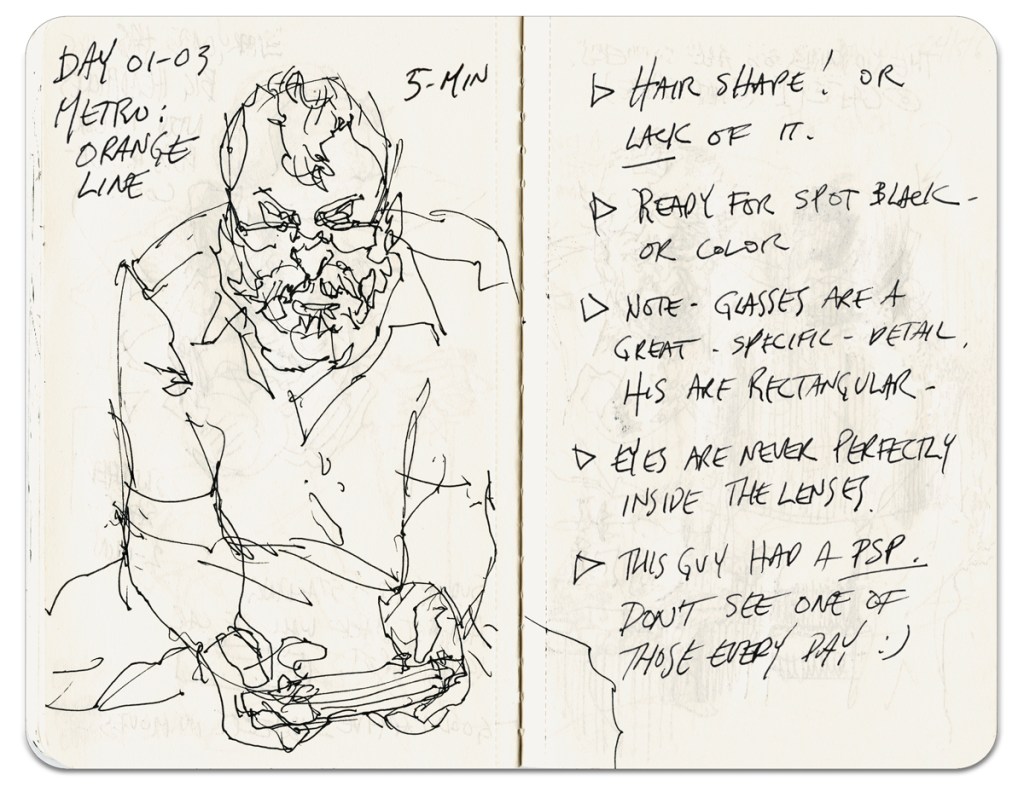 DAY 01-03
METRO:
ORANGE
LINE
5-MIN
▷ HAIR SHAPE. OR
LACK OF IT.
▷ READY FOR SPOT BLACK -
OR COLOR
▷ NOTE - GLASSES ARE A
GREAT - SPECIFIC - DETAIL.
HIS ARE RECTANGULAR -
▷ EYES ARE NEVER PERFECTLY
INSIDE THE LENSES.
▷ THIS GUY HAD A PSP.
DON'T SEE ONE OF
THOSE EVERY DAY :)